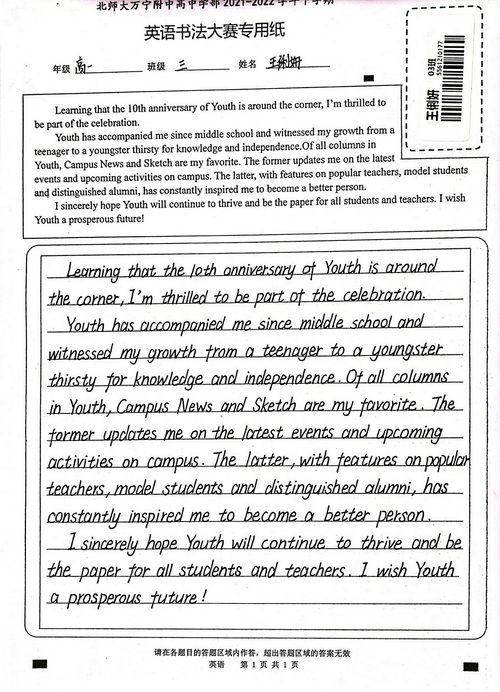 北师大万宁附中高中学部 2021-2022 学年下学期
英语书法大赛专用纸
年级 高一 班级 三 姓名
王俐妍 03班
5561210177
Learning that the 10th anniversary of Youth is around the corner, I'm thrilled to
be part of the celebration.
Youth has accompanied me since middle school and witnessed my growth from a
teenager to a youngster thirsty for knowledge and independence.Of all columns in
Youth, Campus News and Sketch are my favorite. The former updates me on the latest
events and upcoming activities on campus. The latter, with features on popular teachers, model students
and distinguished alumni, has constantly inspired me to become a better person.
I sincerely hope Youth will continue to thrive and be the paper for all students and teachers. I wish
Youth a prosperous future!
Learning that the 10th anniversary of Youth is around
the corner, I'm thrilled to be part of the celebration.
Youth has accompanied me since middle school and
witnessed my growth from a teenager to a youngster
thirsty for knowledge and independence. Of all columns
in Youth, Campus News and Sketch are my favorite. The
former updates me on the latest events and upcoming
activities on campus. The latter, with features on popular
teachers, model students and distinguished alumni, has
constantly inspired me to become a better person.
I sincerely hope Youth will continue to thrive and be
the paper for all students and teachers. I wish Youth
a prosperous future!
请在各题目的答题区域内作答，超出答题区域的答案无效
英语 第 1 页 共 1 页